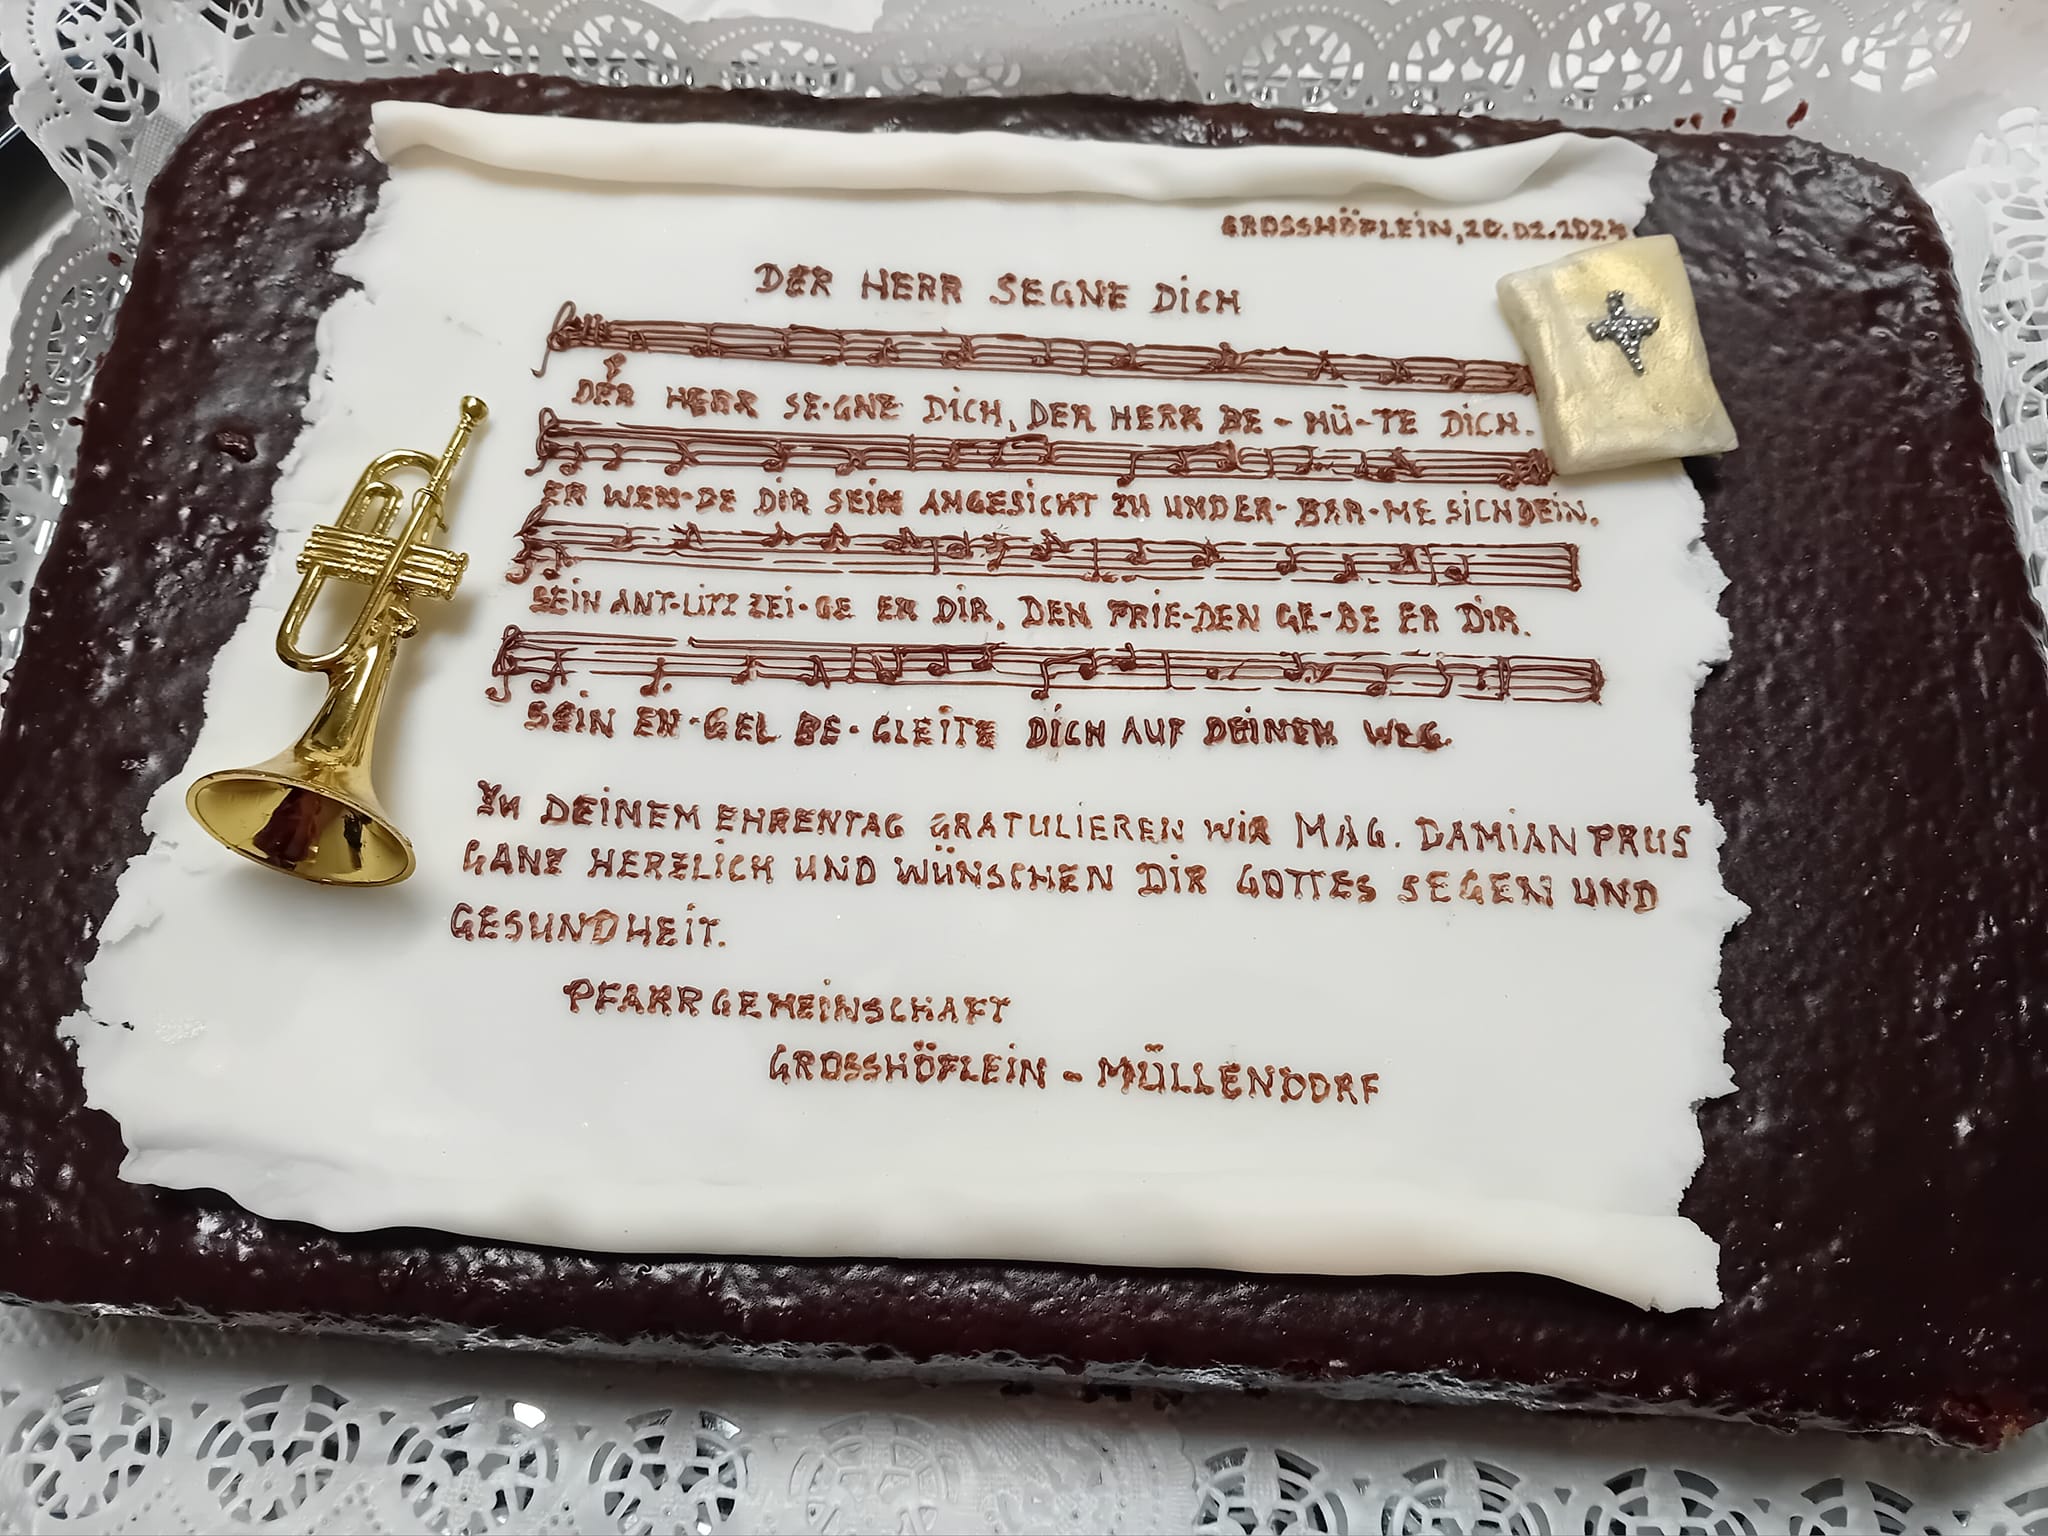 GROSSHÖFLEIN, 20.02.2024
DER HERR SEGNE DICH
DER HERR SE-GNE DICH, DER HERR BE-HÜ-TE DICH.
ER WEN-DE DIR SEIN ANGESICHT ZU UND ER-BAR-ME SICH DEIN.
SEIN ANT-LITZ ZEI-GE ER DIR, DEN FRIE-DEN GE-BE ER DIR.
SEIN EN-GEL BE-GLEITE DICH AUF DEINEM WEG.
ZU DEINEM EHRENTAG GRATULIEREN WIR MAG. DAMIAN PRUS
GANZ HERZLICH UND WÜNSCHEN DIR GOTTES SEGEN UND
GESUNDHEIT.
PFARRGEMEINSCHAFT
GROSSHÖFLEIN - MÜLLENDORF